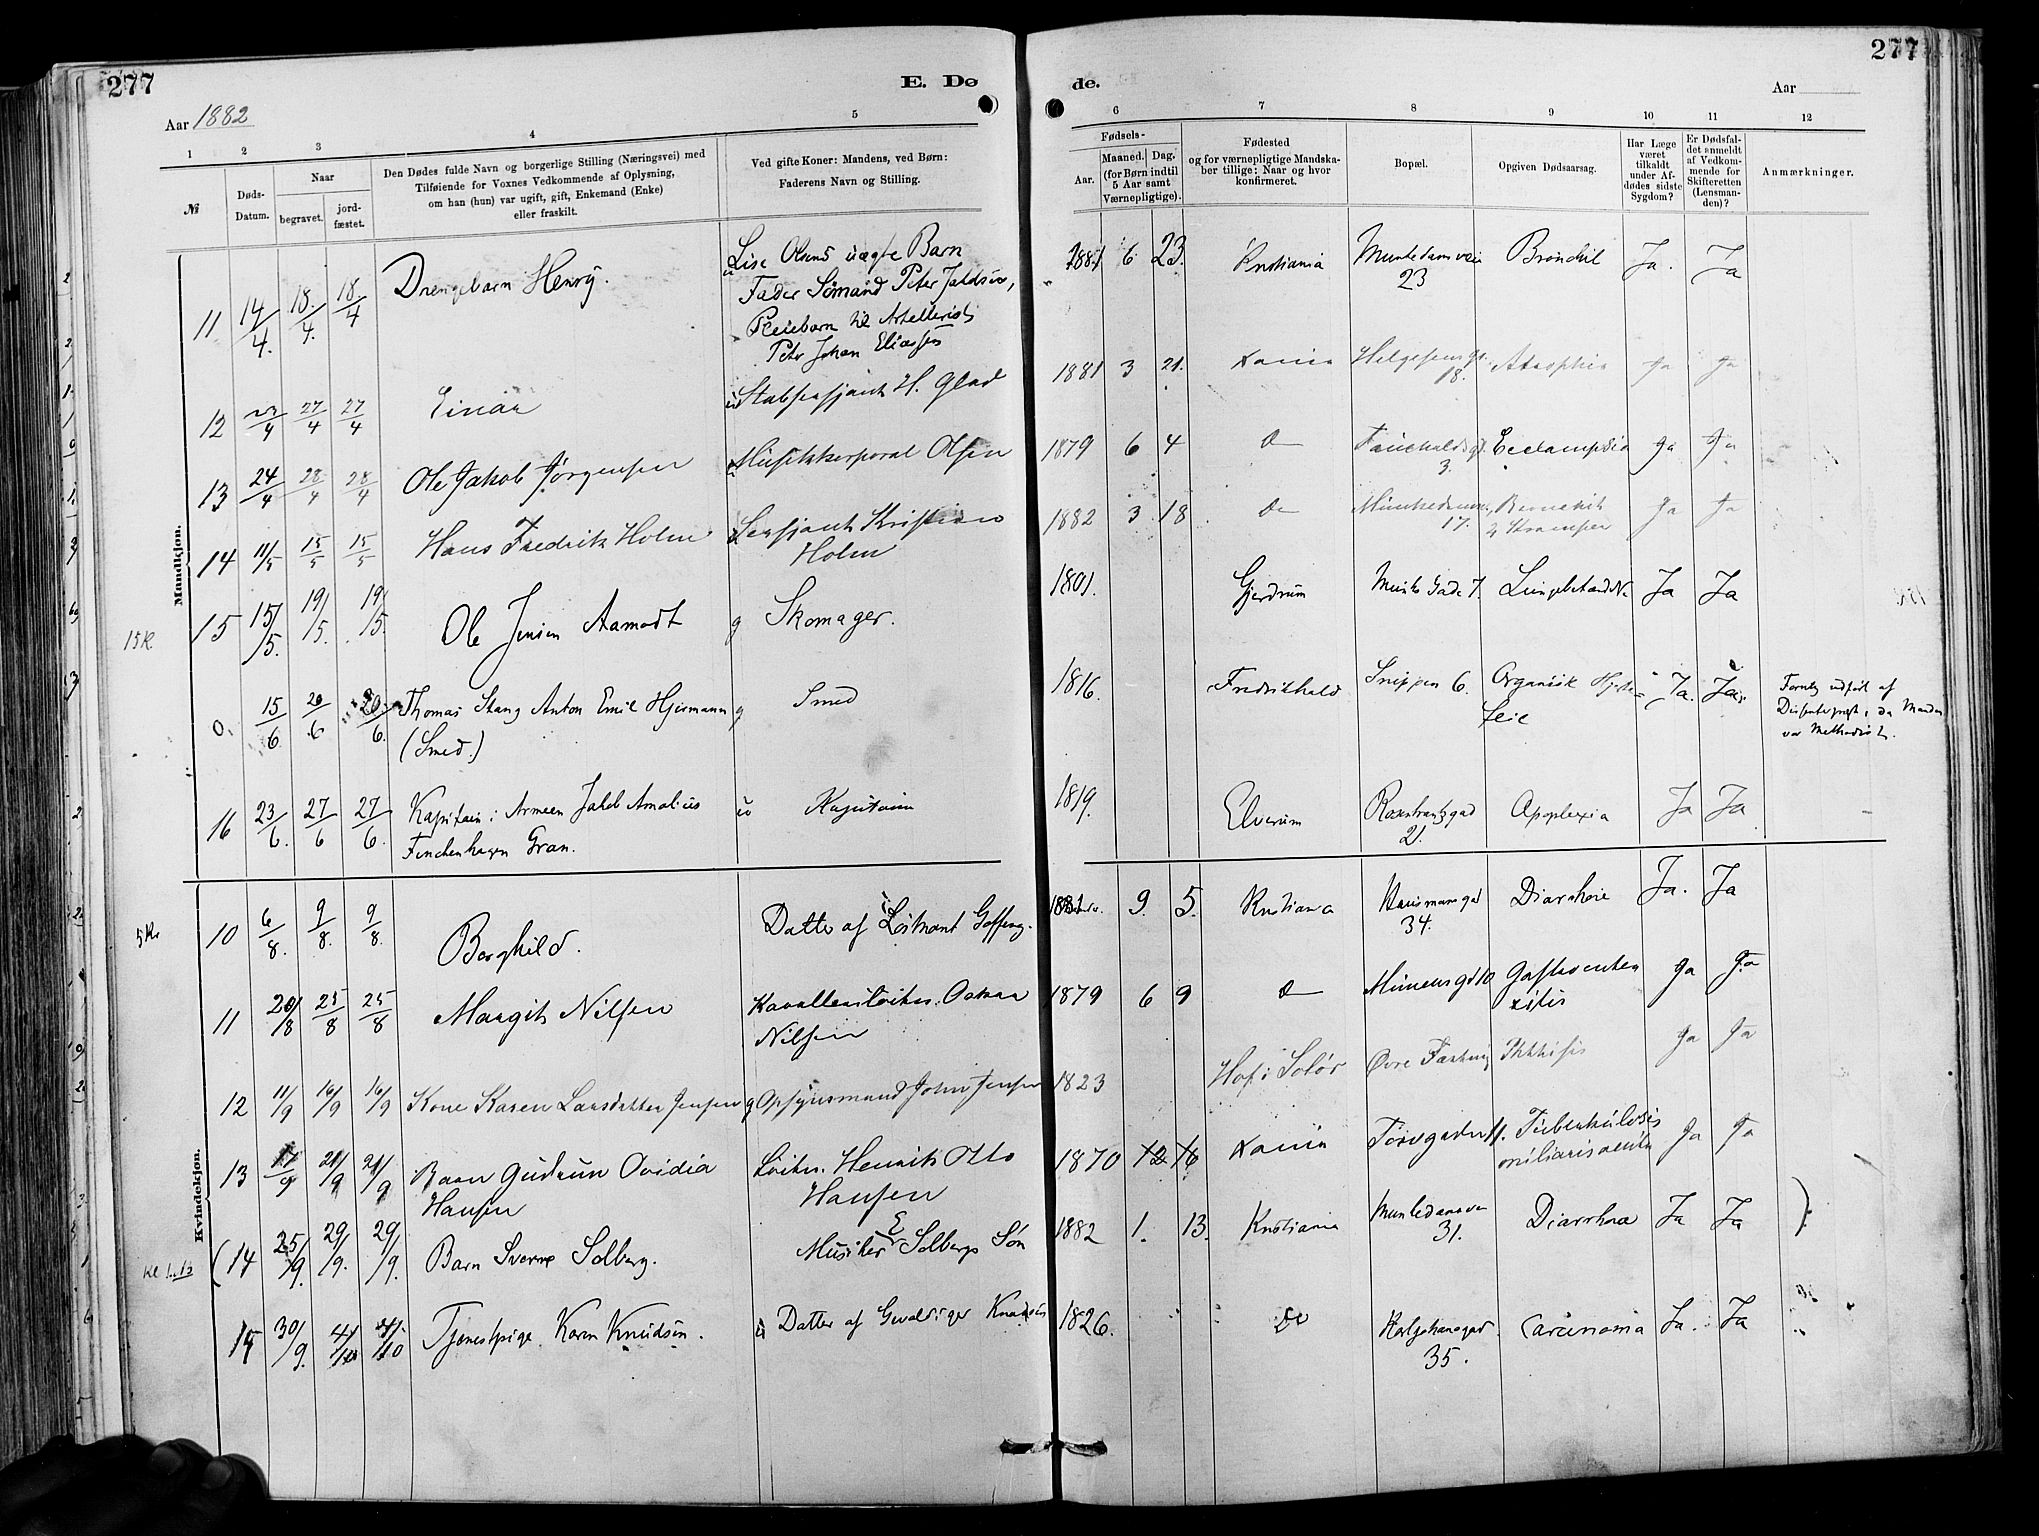 277
E. Dø
Aar 1882
1 2 3 4 5
№
Døds-
Datum.
Naar
begravet.
jord-
fæstet.
Den Dødes fulde Navn og borgerlige Stilling (Næringsvei) med
Tilføiende for Voxnes Vedkommende af Oplysning,
om han (hun) var ugift, gift, Enkemand (Enke)
eller fraskilt.
Ved gifte Koner: Mandens, ved Børn:
Faderens Navn og Stilling.
Mandkjøn.
11 14/4. 18./4. 18/4 Drengebarn Henry. Lise Olsens uægte Barn
Fader Sømand Peter
Pleiebarn til Artellerist
Peter Johan Eliassen
12 27/4 27/4 Einar H. Glad
13 24/4 28/4 28/4 Ole Jakob Jørgensen Musikkorporal Olsen
14 11/5 15/5 15/5 Hans Fredrik Holm Sersjant Kristian
Holm
15 Kr.
15 15/5. 19/5. 19/5. Ole Jensen Aamodt g Skomager.
0. 15/6 20/6 20/6. Thomas Stang Anton Emil Hjermann g Smed
(Smed.)
16 23/6. 27/6 27/6. Kapitain i Armeen Jakob Amalius u Kapitain
Finchenhagen Gran.
Kvindekjøn.
5 Kr
10 6/8. 9/8. 9/8. Borghild. Datter af Løitnant
11 20/8 25/8 25/8 Margit Nilsen Oskar
Nilsen
12 11/9 16/9 16/9 Kone Karen Larsdatter Jensen g Opsynsmand John Jensen
13 17/9 21/9 21/9 Barn Gudrun Ovidia Løitn. Henrik Otto
Hansen Hansen
(14 25/9. 29/9. 29/9. Barn Sverre Solberg. Musiker E Solbergs Søn
15 30/9. 4/10 4/10 Tjenestpige Karen Knudsen. u Datter af Gevaldiger Knudsen
277
de.
Aar
6 7 8 9 10 11 12
Fødsels-
Aar.
Maaned. Dag.
(for Børn indtil
5 Aar samt
Værnepligtige).
Fødested
og for værnepligtige Mandska-
ber tillige: Naar og hvor
konfirmeret.
Bopæl.
Opgiven Dødsaarsag.
Har Læge
været
tilkaldt
under Af-
dødes sidste
Sygdom?
Er Dødsfal-
det anmeldt
af Vedkom-
mende for
Skifteretten
(Lensman-
den)?
Anmærkninger.
1881 6 23. Kristiania Munkedamsvei Bronchit Ja. Ja
23
1881 3 21. Kania Helgesens gd. Atrophia Ja Ja
18.
1879 6 4 Do Eclampsia Ja Ja
3.
1882 3 18 Do Ja Ja
17. & Kramper
1801. Gjerdrum Munke Gade 7. Lungebetændelse Ja Ja
1816. Fredrikhald Snippen 6. Organisk Hjerte- Ja. Ja.
feil
udført af
Dissenterpræst, da Manden
var Methodist.
1819. Elverum Rosenkrantzgad Apoplexia Ja Ja
21.
1881 9. 5. Kristiania Hausmansgad Diarrhoie Ja. Ja
34.
1879 6 9 Do Gastroenter Ja Ja
itis
1823 Hof i Solør Øvre Phthisis Ja Ja
1870 12 16 Kania Torvgaden 11. Tuberkulosis Ja Ja
miliaris acuta
1882 1. 13. Kristiania Munkedamsvei Diarrhoea Ja Ja
31.
1826. Do Karljohansgad. Carcinoma Ja. Ja
35.